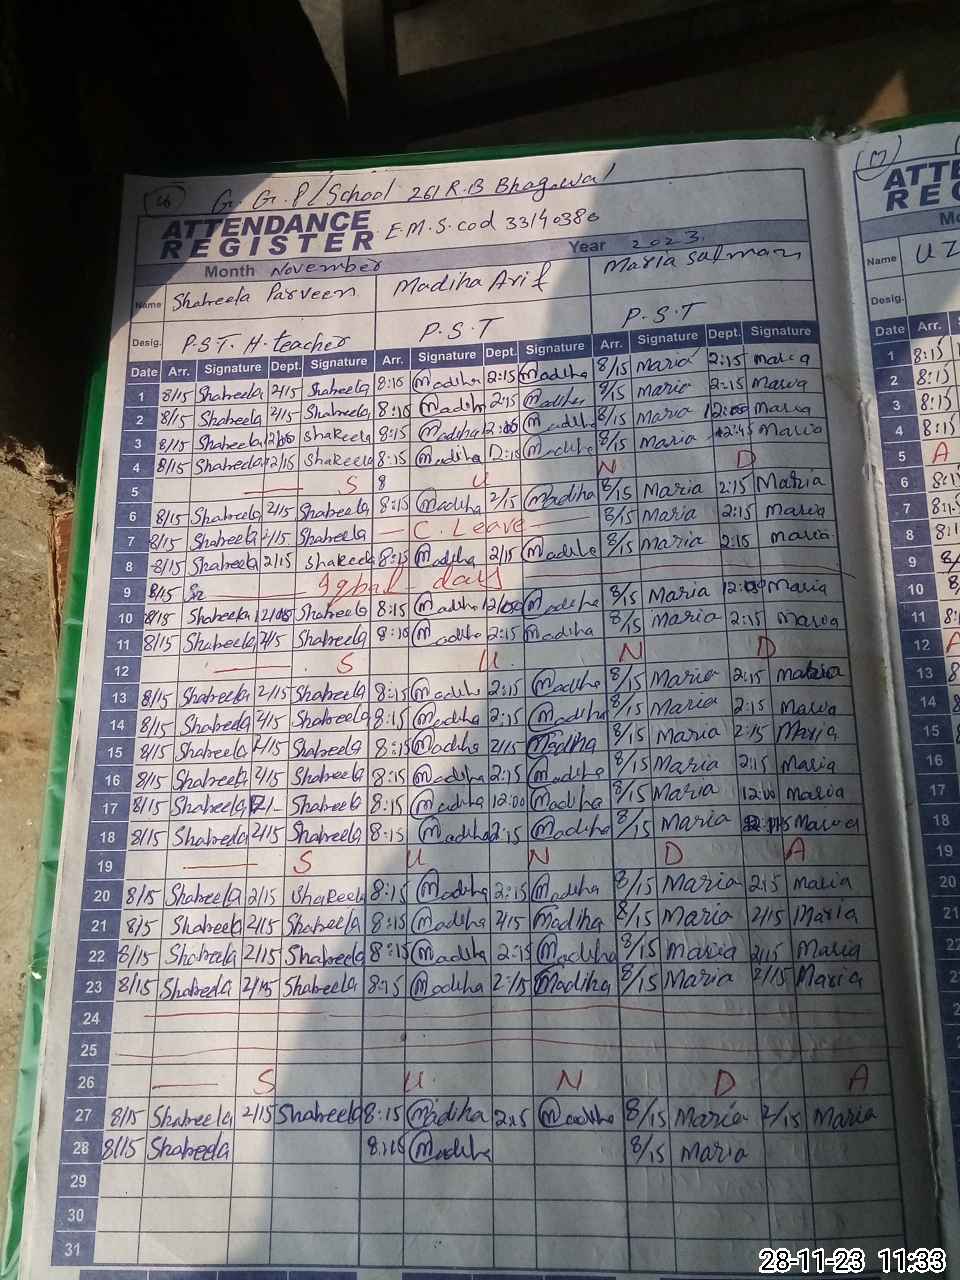 G. G. P / School 261 R.B Bhagowal
ATTENDANCE
REGISTER E.M.S. cod 33140380
Month November Year 2023
Name Shaheela Parveen Madiha Arif Maria Salman
Desig. P.S.T. H. teacher P.S.T P.S.T
Date Arr. Signature Dept. Signature Arr. Signature Dept. Signature Arr. Signature Dept. Signature
1 8/15 Shaheela 2/15 Shaheela 8:15 Madiha 2:15 Madiha 8/15 Maria 2:15 Maria
2 8/15 Shaheela 2/15 Shaheela 8:15 Madiha 2:15 Madiha 8/15 Maria 2:15 Maria
3 8/15 Shaheela Shaheela 8:15 Madiha Madiha 8/15 Maria Maria
4 8/15 Shaheela 2/15 Shaheela 8:15 Madiha Madiha 8/15 Maria Maria
5 S 8 U N D
6 8/15 Shaheela 2/15 Shaheela 8:15 Madiha 2/15 Madiha 8/15 Maria 2:15 Maria
7 8/15 Shaheela 2/15 Shaheela C. Leave 8/15 Maria 2:15 Maria
8 8/15 Shaheela 2/15 Shaheela 8:15 Madiha 2/15 Madiha 8/15 Maria 2:15 Maria
9 8/15 Iqbal day
10 8/15 Shaheela Shaheela 8:15 Madiha Madiha 8/15 Maria Maria
11 8/15 Shaheela 2/15 Shaheela 8:15 Madiha 2:15 Madiha 8/15 Maria 2:15 Maria
12 S U N D
13 8/15 Shaheela 2/15 Shaheela 8:15 Madiha 2:15 Madiha 8/15 Maria 2:15 Maria
14 8/15 Shaheela 2/15 Shaheela 8:15 Madiha 2:15 Madiha 8/15 Maria 2:15 Maria
15 8/15 Shaheela 2/15 Shaheela 8:15 Madiha 2/15 Madiha 8/15 Maria 2:15 Maria
16 8/15 Shaheela 2/15 Shaheela 8:15 Madiha 2:15 Madiha 8/15 Maria 2:15 Maria
17 8/15 Shaheela Shaheela 8:15 Madiha 12:00 Madiha 8/15 Maria 12:00 Maria
18 8/15 Shaheela 2/15 Shaheela 8:15 Madiha 2:15 Madiha 8/15 Maria Maria
19 S U N D A
20 8/15 Shaheela 2/15 Shaheela 8:15 Madiha 2:15 Madiha 8/15 Maria 2:15 Maria
21 8/15 Shaheela 2/15 Shaheela 8:15 Madiha 2/15 Madiha 8/15 Maria 2/15 Maria
22 8/15 Shaheela 2/15 Shaheela 8:15 Madiha 2:15 Madiha 8/15 Maria 2/15 Maria
23 8/15 Shaheela 2/15 Shaheela 8:15 Madiha 2:15 Madiha 8/15 Maria 2/15 Maria
24
25
26 S U N D A
27 8/15 Shaheela 2/15 Shaheela 8:15 Madiha 2:15 Madiha 8/15 Maria 2/15 Maria
28 8/15 Shaheela 8:15 Madiha 8/15 Maria
29
30
31
ATTE
REG
Name UZ
Desig.
Date Arr.
1 8:15
2 8:15
3 8:15
4 8:15
5 A
6 8:15
7 8:15
8 8:15
9
10
11
12 A
13
14
15
16
17
18
19
20
21
22
28-11-23 11:33